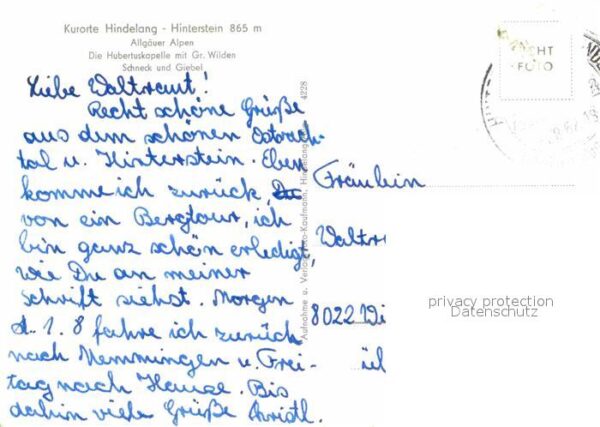 Kurorte Hindelang - Hinterstein 865 m
Allgäuer Alpen
Die Hubertuskapelle mit Gr. Wilden
Schneck und Giebel
Liebe Waltraut!
Recht schöne Grüße
aus dem schönen Ostrach-
tal u. Hinterstein. Eben
komme ich zurück,
von ein Bergtour, ich
bin ganz schön erledigt,
wie Du an meiner
Schrift siehst. Morgen
d. 1. 8 fahre ich zurück
nach Memmingen u. Frei-
tag nach Hause. Bis
dahin viele Grüße Christl.
4228
Aufnahme u. Verlag Foto-Kaufmann, Hindelang
ECHT
FOTO
Fräulein
Waltr
8022
privacy protection
Datenschutz